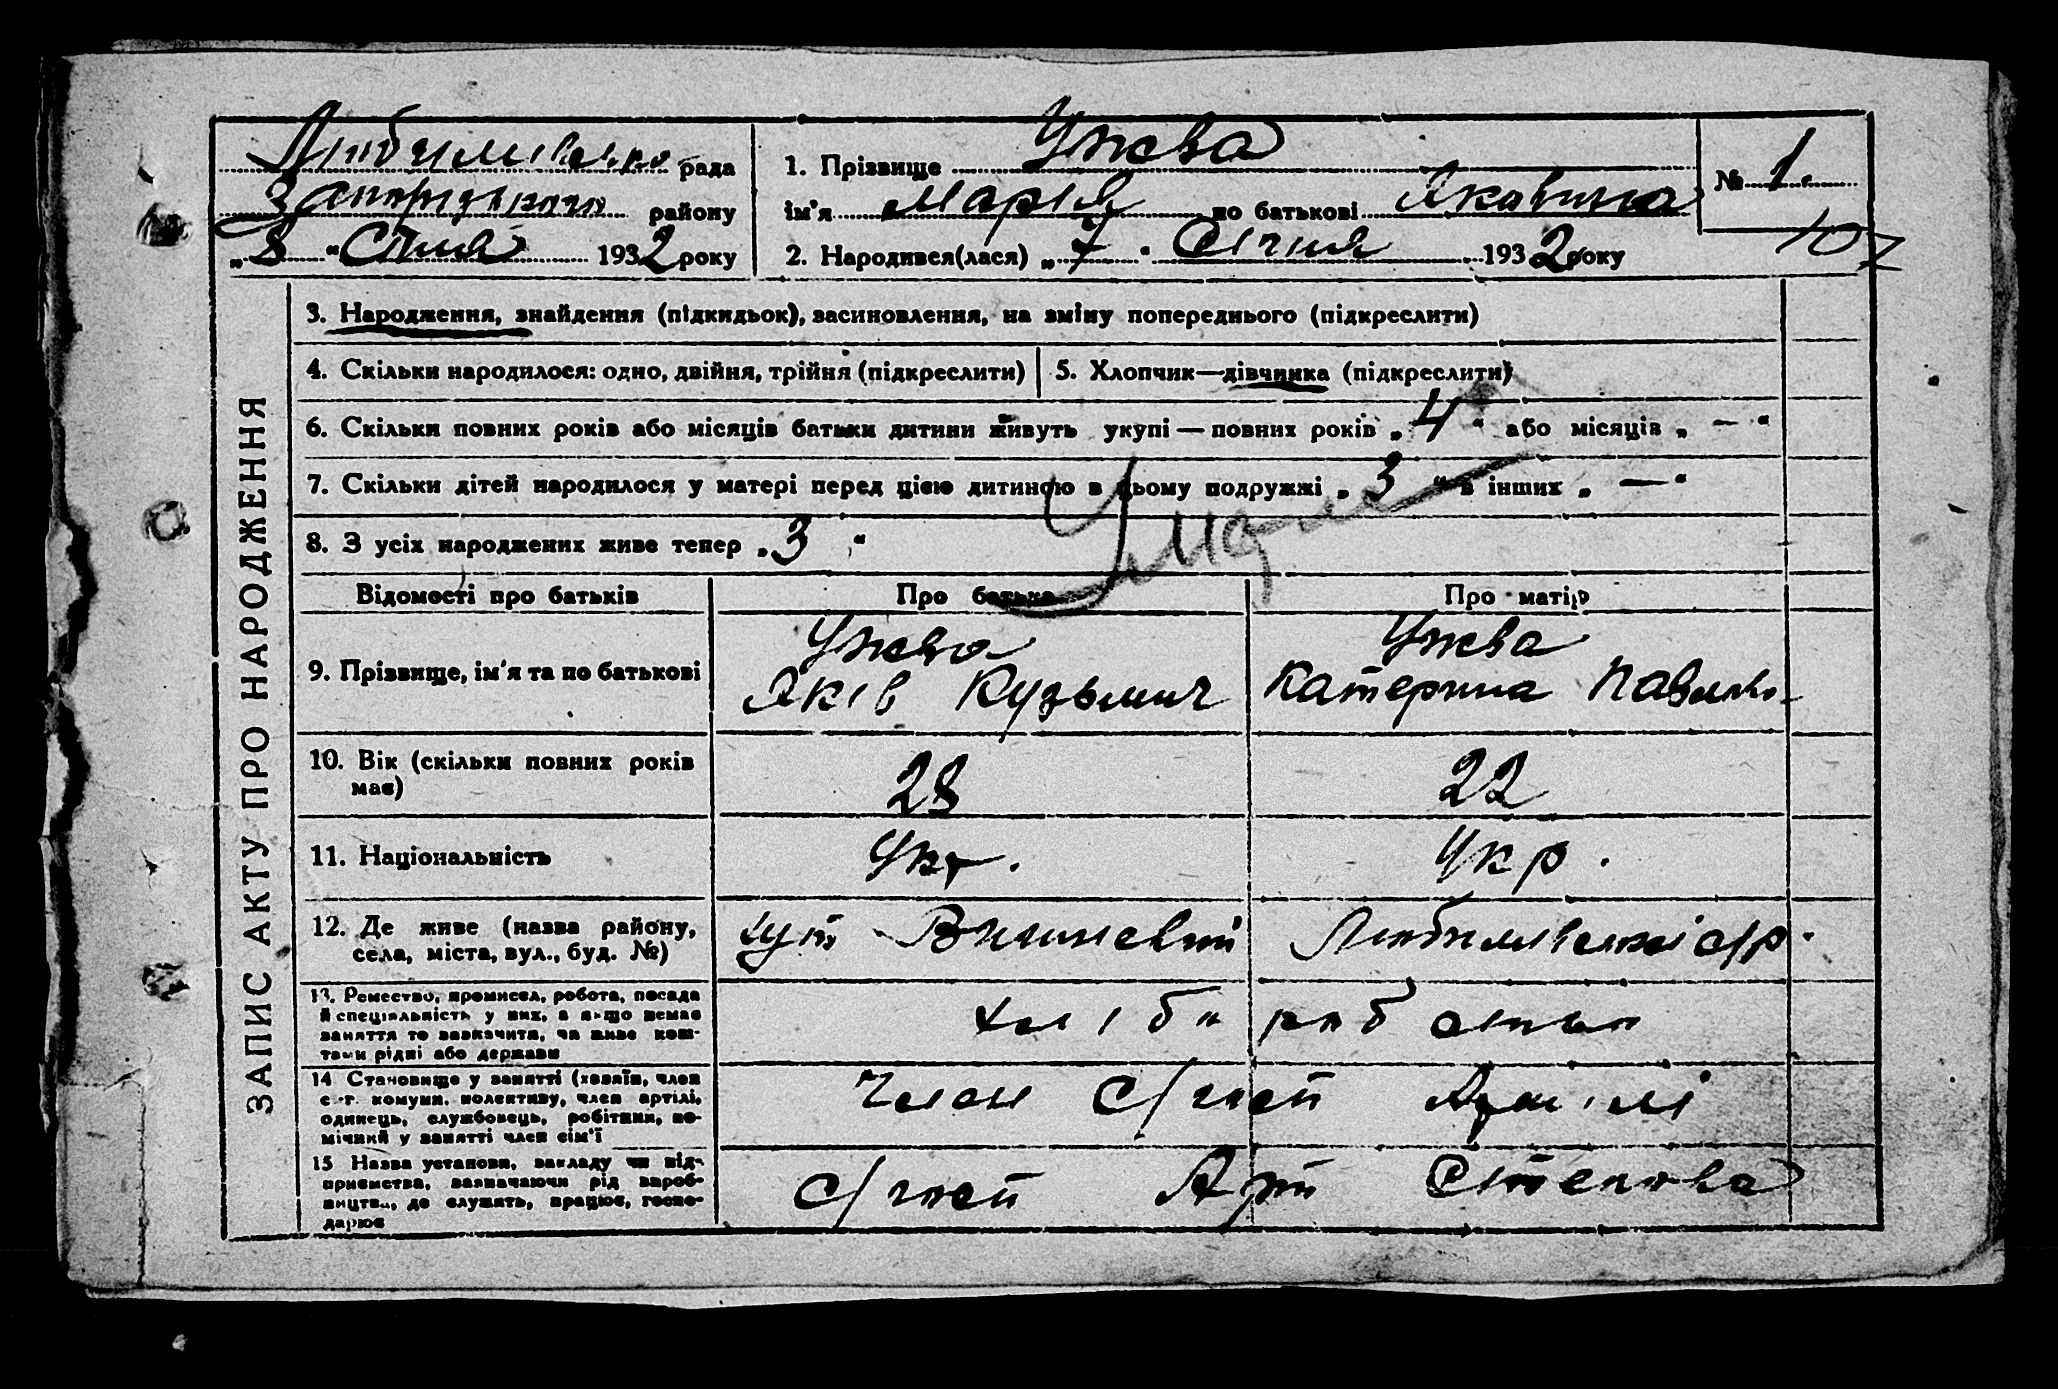 Любимівська рада
Запорізького району
„8“ Січня 1932 року
1. Прізвище Ужва
ім'я Марія по батькові Яковівна
2. Народився(лася) „7“ Січня 1932 року
№ 1.
107
ЗАПИС АКТУ ПРО НАРОДЖЕННЯ
3. Народження, знайдення (підкидьок), засиновлення, на зміну попереднього (підкреслити)
4. Скільки народилося: одно, двійня, трійня (підкреслити)
5. Хлопчик—дівчинка (підкреслити)
6. Скільки повних років або місяців батьки дитини живуть укупі — повних років „4“ або місяців „—“
7. Скільки дітей народилося у матері перед цією дитиною в цьому подружжі „3“ в інших „—“
8. З усіх народжених живе тепер „3“
Відомості про батьків Про батька Про матір
9. Прізвище, ім'я та по батькові
Ужва
Яків Кузьмич
Ужва
Катерина
10. Вік (скільки повних років
має)
28
22
11. Національність
Укр.
Укр.
12. Де живе (назва району,
села, міста, вул., буд. №)
хут Вишневий
Любимівської с/р.
13. Ремество, промисел, робота, посада
й спеціяльність у них, а якщо немає
заняття то зазначити, чи живе кош-
тами рідні або держави
14 Становище у занятті (хазяїн, член
с.-г. комуни, колективу, член артілі,
одинець, службовець, робітник, по-
мічний у занятті член сім'ї
Член с/госп Артілі
15 Назва установи, закладу чи під-
приємства, зазначаючи рід вироб-
ництва, де служить, працює, госпо-
дарює
с/госп Арт